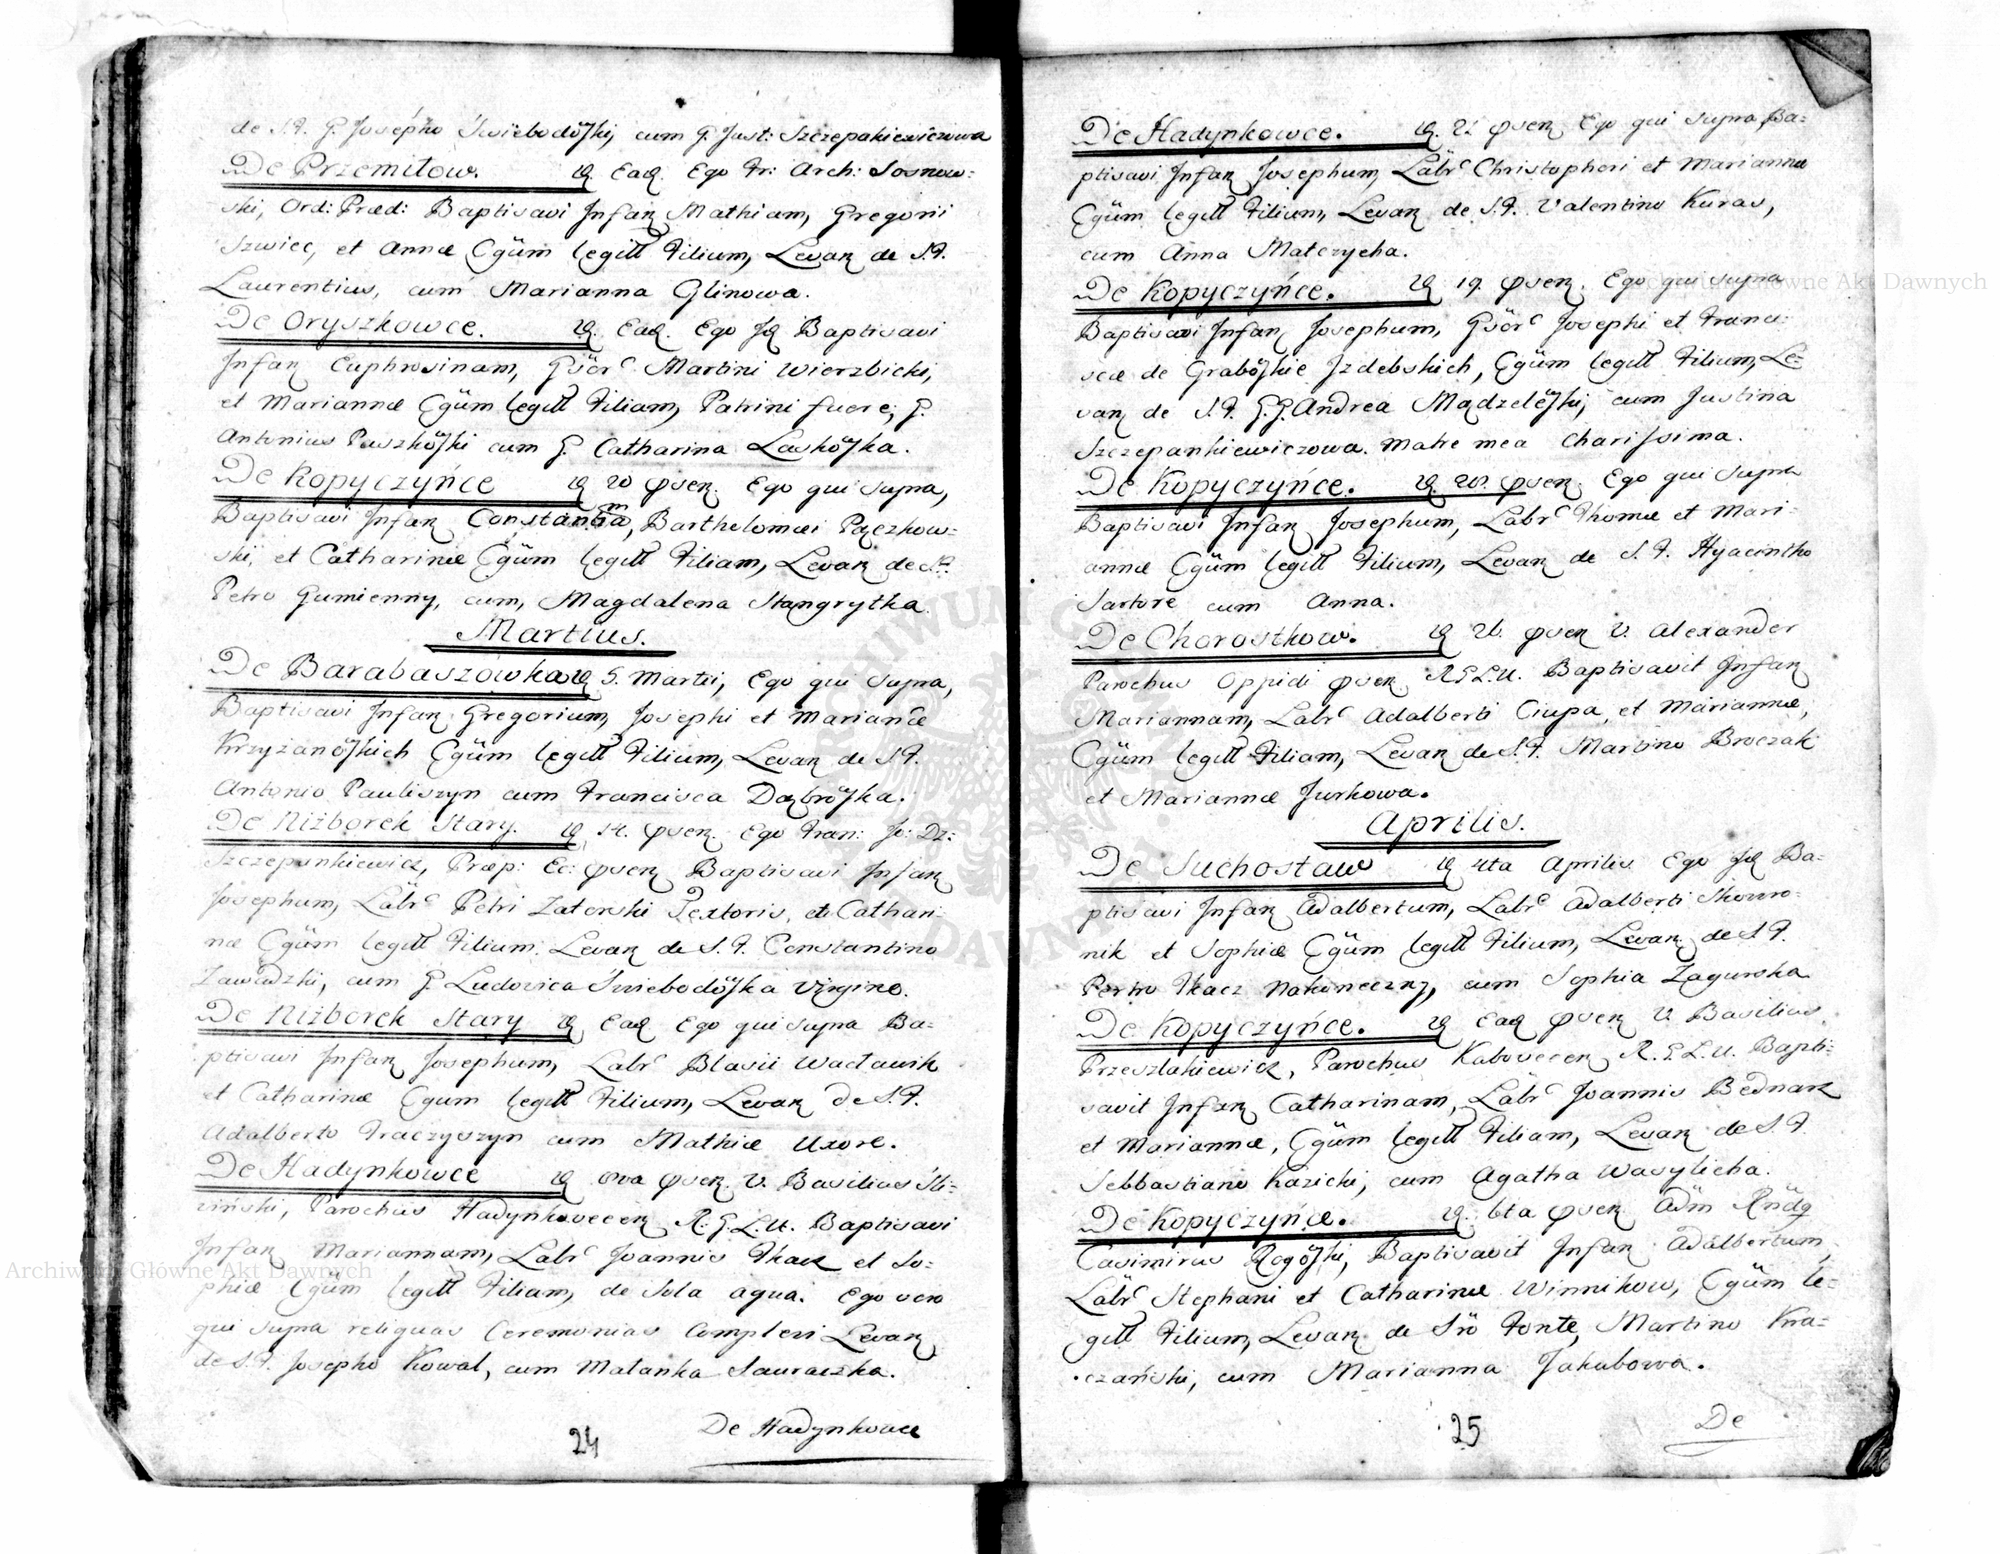 de S. F. G. Josepho Swiebodõski, cum G. Just: Szczepakiewiczowa
De Przemiłow. Ead. Ego Fr: Arch: Sosnow=
ski, Ord: Præd: Baptisavi Infan Mathiam, Gregorii
Szwiec, et Annæ Cgüm legitt Filium, Levan de S. F.
Laurentius, cum Marianna Glinowa.
De Oryszkowce. Ead. Ego Id Baptisavi
Infan Euphrosinam, Martini Wierzbicki,
et Mariannæ Cgüm legitt Filiam, Patrini fuere, G.
Antonius Paszkõski cum G. Catharina Laskõska.
De Kopyczyńce 20 Ego qui supra,
Baptisavi Infan Constantiam, Barthelomæi Pączkow=
ski, et Catharinæ Cgüm legitt Filiam, Levan de S. F.
Petro Gumienny, cum, Magdalena Stangrytka.
Martius.
De Barabaszowka 5. Martii, Ego qui supra,
Baptisavi Infan Gregorium, Josephi et Mariannæ
Krzyżanõskich Cgüm legitt Filium, Levan de S. F.
Antonio Pauliszyn cum Francisca Dąbrõska.
De Niżborek Stary. 14. Ego Fran: Jo: Dz:
Szczepankiewicz, Præp: Ec: Baptisavi Infan
Josephum, Labr Petri Zatorski Textoris, et Cathari=
næ Cgüm legitt Filium. Levan de S. F. Constantino
Zawadzki, cum G Ludovica Swiebodõska Virgine.
De Niżborek Stary Ead Ego qui supra Ba=
ptisavi Infan Josephum, Labr Blasii Wacławik
et Catharinæ Cgum legitt Filium, Levan de S. F.
Adalberto Traczyszyn cum Mathiæ Uxore.
De Hadynkowce V. Basilius Sli=
ziński, Parochus Hadynkovecen R. G. L. U. Baptisavi
Infan Mariannam, Labr Joannis Tkacz et So=
phiæ Cgüm legitt Filiam, de sola aqua. Ego vero
qui supra reliquas Ceremonias Complevi Levan
de S. F. Josepho Kowal, cum Malanka Sauraszka.
24 De Hadynkowce
De Hadynkowce. Ego qui supra, Ba=
ptisavi Infan Josephum, Labr Christophori et Mariannæ
Cgüm legitt Filium, Levan de S. F. Valentino Kuras,
cum Anna Matczycha.
De Kopyczyńce. 19. Ego qui supra
Baptisavi Infan Josephum, Josephi et Franci=
scæ de Grabõskie Izdebskich, Cgüm legitt Filium, Le=
van de S. F. G. G. Andrea Mądzelõski, cum Justina
Szczepankiewiczowa. Matre mea Charissima.
De Kopyczyńce. Ego qui supra
Baptisavi Infan Josephum, Labr Thomæ et Mari=
annæ Cgüm legitt Filium, Levan de S. F. Hyacintho
Sartore cum Anna.
De Chorostkow. 26. V. Alexander
Parochus Oppidi R G L. U. Baptisavit Infan
Mariannam, Labr Adalberti Ciupa, et Mariannæ,
Cgüm legitt Filiam, Levan de S. F. Martino Broczak
et Mariannæ Jurkowa.
Aprilis.
De Suchostaw 4ta Aprilis Ego Id Ba=
ptisavi Infan Adalbertum, Labr Adalberti Skowro=
nik et Sophiæ Cgüm legitt Filium, Levan de S. F.
Petro Tkacz Nakoneczny, cum Sophia Zagurska
De Kopyczyńce. Ead V. Basilius
Przeszlakiewicz, Parochus Kabovecen R. G. L. U. Bapti=
savit Infan Catharinam, Labr Joannis Bednarz
et Mariannæ, Cgüm legitt Filiam, Levan de S. F.
Sebbastiano Kozicki, cum Agatha Wasylicha.
De Kopyczyńce. 6ta Adm Rndg
Casimirus Rogõski, Baptisavit Infan Adalbertum,
Labr Stephani et Catharinæ Winnikow, Cgüm le=
gitt Filium, Levan de Sro Fonte, Martino Kra=
czański, cum Marianna Jakubowa.
25 De
Archiwum Główne Akt Dawnych
Archiwum Główne Akt Dawnych